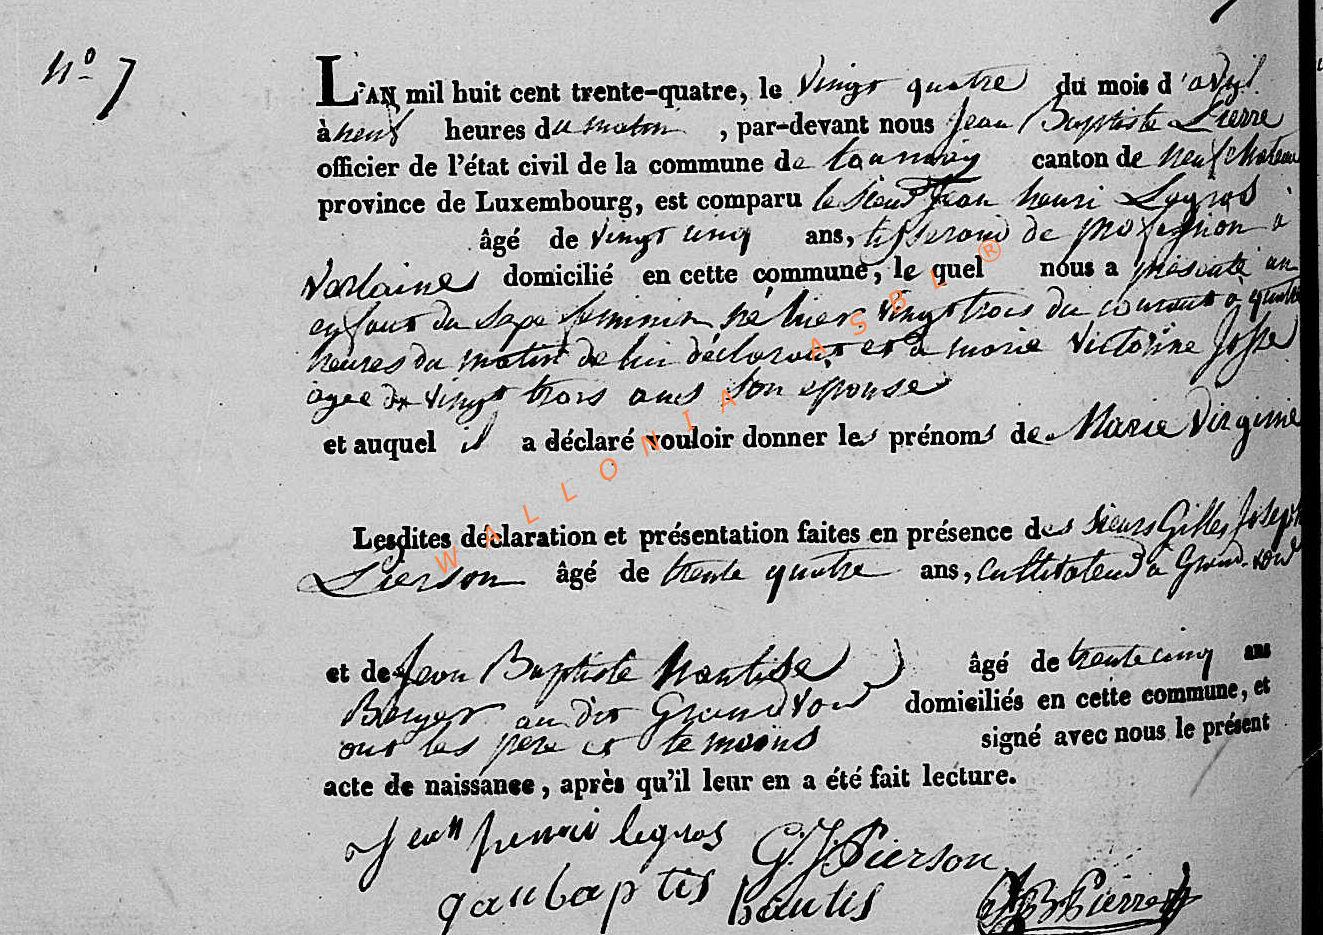 N° 7
L'AN mil huit cent trente-quatre, le vingt quatre du mois d'avril
à neuf heures du matin, par-devant nous Jean Baptiste Pierre
officier de l'état civil de la commune de tournay canton de neufchateau
province de Luxembourg, est comparu le sieur Jean henri Legros
âgé de vingt cinq ans, tisserand de profession à
Verlaine domicilié en cette commune, le quel nous a présenté un
enfant du sexe feminin né hier vingt trois du courant à quatre
heures du matin de lui déclarant et de marie Victorine Josse
agée de vingt trois ans son epouse
et auquel il a déclaré vouloir donner les prénoms de Marie Virginie
Lesdites déclaration et présentation faites en présence des sieurs Gilles Joseph
Pierson âgé de trente quatre ans, cultivateur à Grand-voir
et de Jean Baptiste âgé de trente cinq ans
Berger au dit Grandvoir domiciliés en cette commune, et
ont les père et temoins signé avec nous le présent
acte de naissance, après qu'il leur en a été fait lecture.
Jean henri legros G. J. Pierson
J B Pierre
WALLONIA ASBL ®